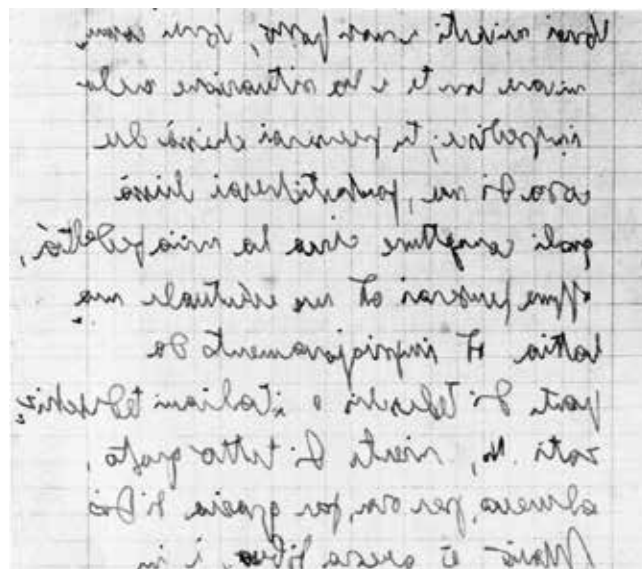 Vorrei scriverti e non posso, vorrei comu
nicare con te e la situazione me lo
impedisce; tu penserai chissà che
cosa di me, fantasticherai chissà
quali congetture circa la mia fedeltà,
oppure penserai ad un eventuale ma
lattia od imprigionamento da
parte di tedeschi o italiani tedeschiz
zati. No, niente di tutto questo,
almeno, per ora, per grazia di Dio
Mario è ancora libero, è in